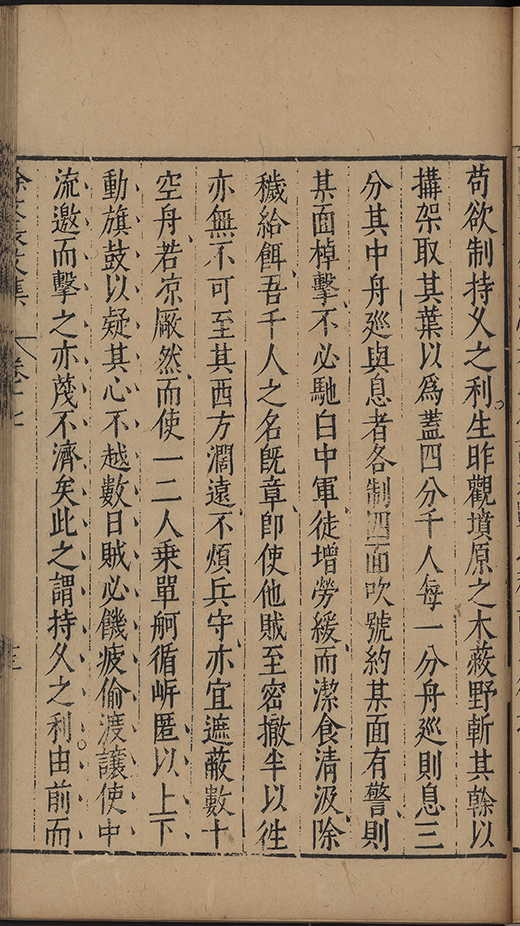 苟欲制持久之利生昨觀墳原之木蔽野斬其榦以
搆架取其葉以爲蓋四分千人每一分舟廵則息三
分其中舟廵與息者各制四面吹號約某面有警則
某面棹擊不必馳白中軍徒增勞緩而潔食清汲除
穢給餌吾千人之名旣章卽使他賊至密撤半以徃
亦無不可至其西方濶遠不煩兵守亦宜遮蔽數十
空舟若凉厰然而使一二人乗單舸循㟁匿以上下
動旗鼓以疑其心不越數日賊必饑疲偷渡讓使中
流邀而擊之亦蔑不濟矣此之謂持久之利由前而
徐文長文集 卷十七 十三